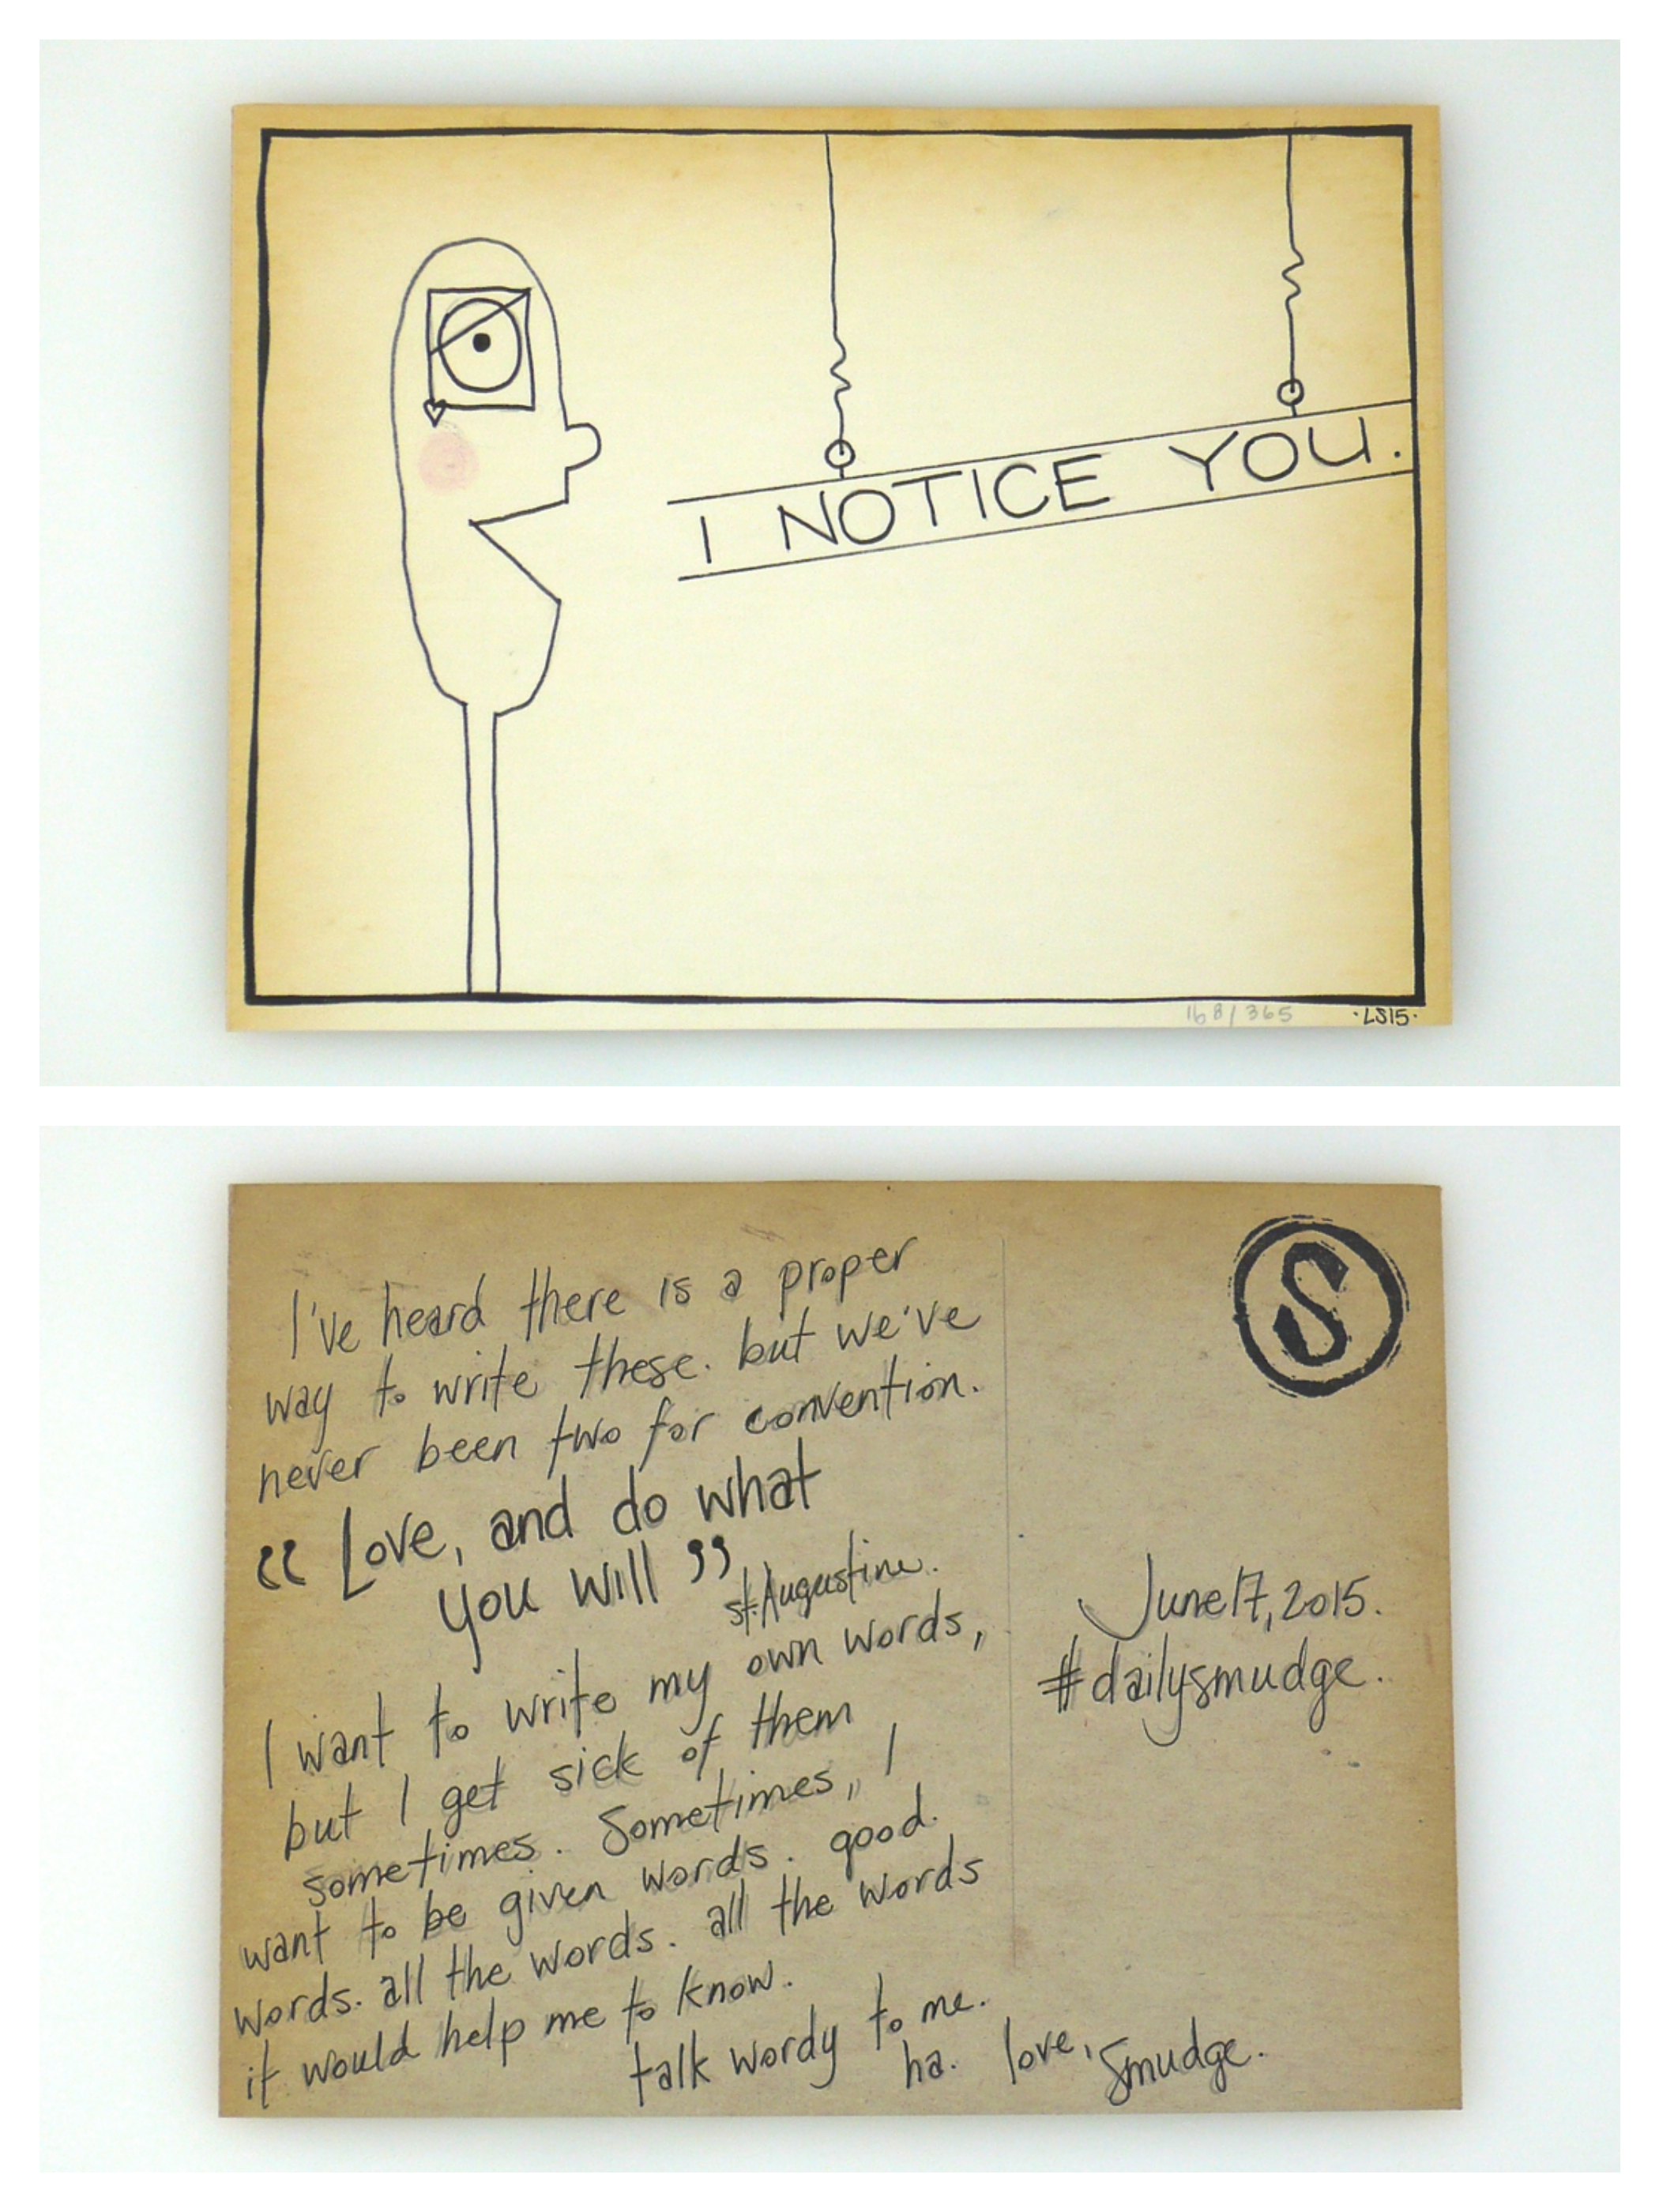 I NOTICE YOU.
168/365
·LS15·
I've heard there is a proper
way to write these. but we've
never been two for convention.
"Love, and do what
you will"
st. Augustine.
I want to write my own words,
but I get sick of them
sometimes. Sometimes, I
want to be given words. good.
words. all the words. all the words
it would help me to know.
talk wordy to me.
ha. love, smudge.
S
June 17, 2015.
#dailysmudge.